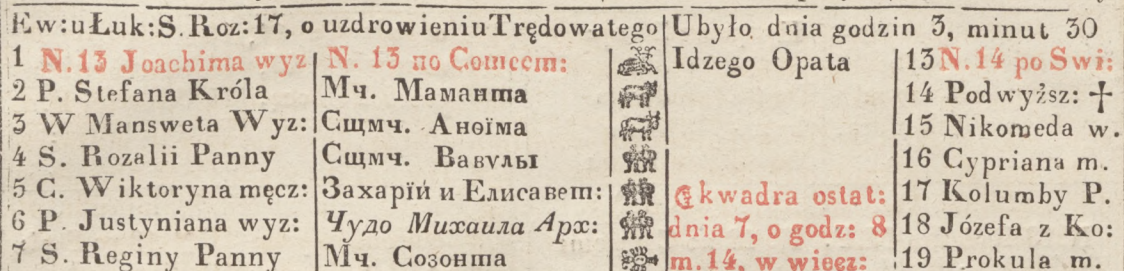 Ew: u Łuk: S. Roz: 17, o uzdrowieniu Trędowatego Ubyło dnia godzin 3, minut 30
1 N. 13 Joachima wyz N. 13 по Сошест: Idzego Opata 13 N. 14 po Swi:
2 P. Stefana Króla Мч. Маманта 14 Podwyźsz: †
3 W Mansweta Wyz: Сщмч. Аноїма 15 Nikomeda w.
4 S. Rozalii Panny Сщмч. Вавулы 16 Cypriana m.
5 C. Wiktoryna męcz: Захарїй и Елисавет: kwadra ostat: 17 Kolumby P.
6 P. Justyniana wyz: Чудо Михаила Арх: dnia 7, o godz: 8 18 Józefa z Ko:
7 S. Reginy Panny Мч. Созонта m. 14, w wiecz: 19 Prokula m.